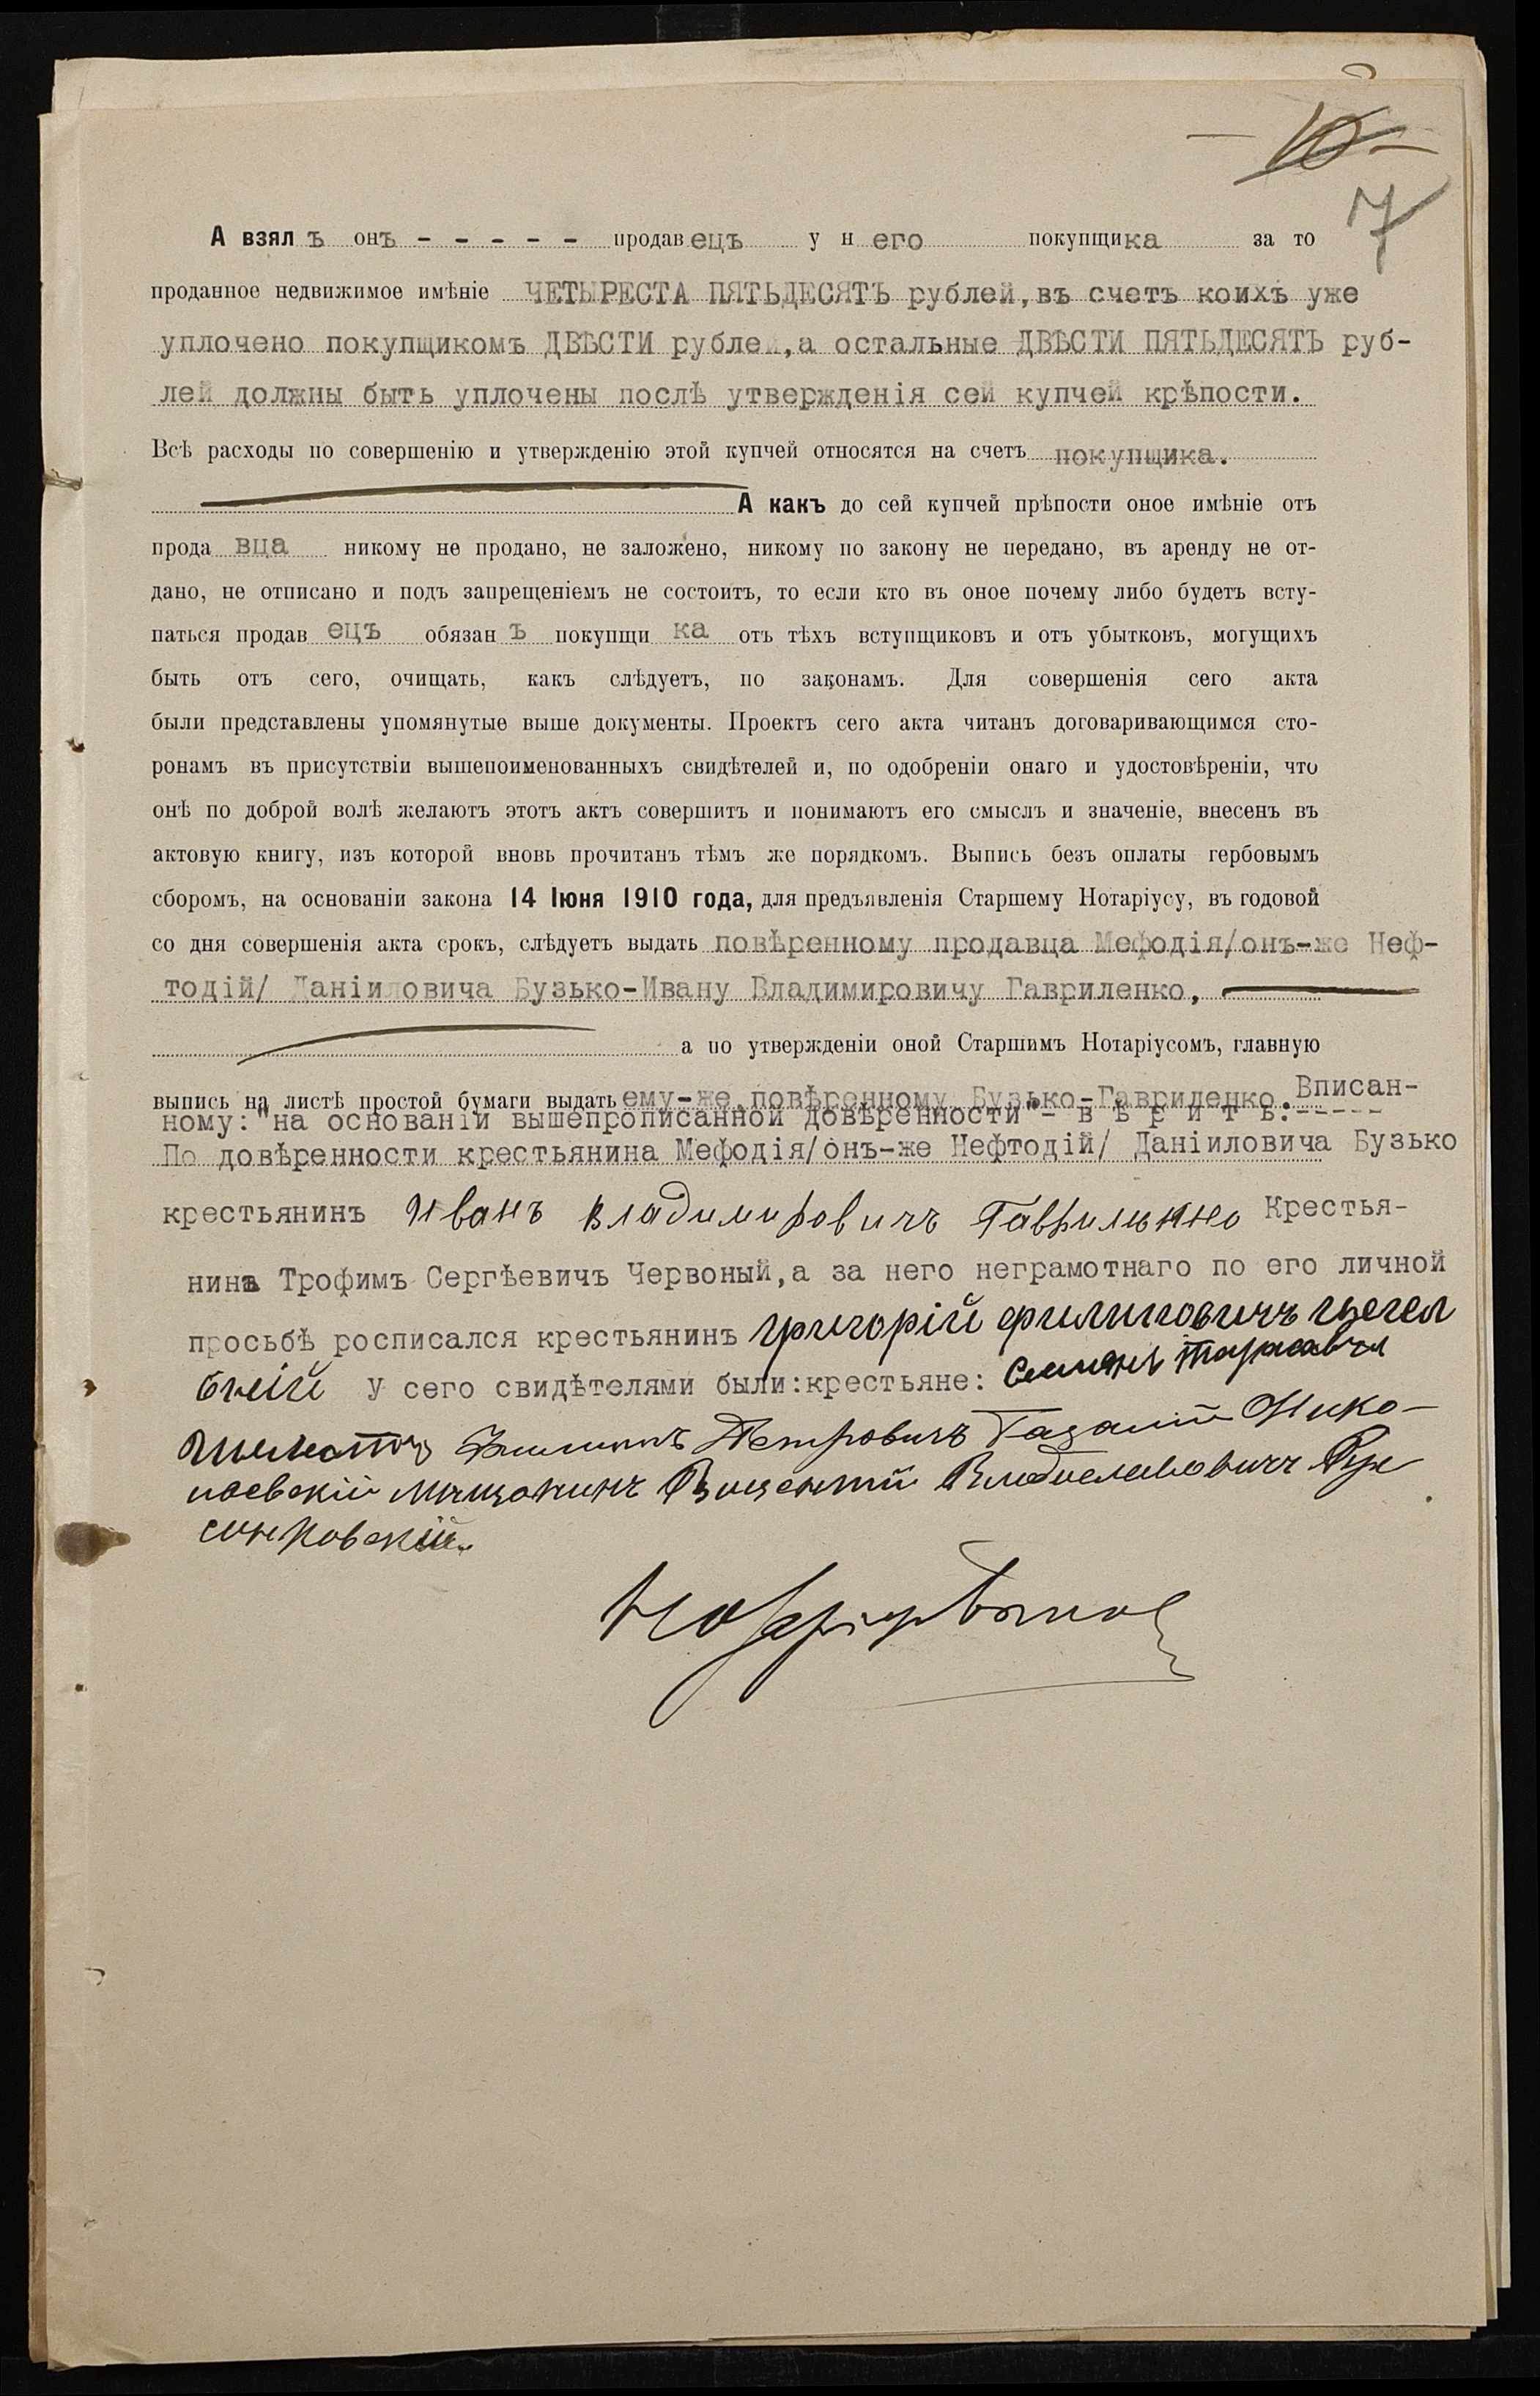 10
7
А взялъ онъ - - - - - продавецъ у него покупщика за то
проданное недвижимое имѣніе ЧЕТЫРЕСТА ПЯТЬДЕСЯТЪ рублей, въ счетъ коихъ уже
уплочено покупщикомъ ДВѢСТИ рублей, а остальные ДВѢСТИ ПЯТЬДЕСЯТЪ руб-
лей должны быть уплочены послѣ утвержденія сей купчей крѣпости.
Всѣ расходы по совершенію и утвержденію этой купчей относятся на счетъ покупщика.
А какъ до сей купчей прѣпости оное имѣніе отъ
продавца никому не продано, не заложено, никому по закону не передано, въ аренду не от-
дано, не отписано и подъ запрещеніемъ не состоитъ, то если кто въ оное почему либо будетъ всту-
паться продавецъ обязанъ покупщика отъ тѣхъ вступщиковъ и отъ убытковъ, могущихъ
быть отъ сего, очищать, какъ слѣдуетъ, по законамъ. Для совершенія сего акта
были представлены упомянутые выше документы. Проектъ сего акта читанъ договаривающимся сто-
ронамъ въ присутствіи вышепоименованныхъ свидѣтелей и, по одобреніи онаго и удостовѣреніи, что
онѣ по доброй волѣ желаютъ этотъ актъ совершить и понимаютъ его смыслъ и значеніе, внесенъ въ
актовую книгу, изъ которой вновь прочитанъ тѣмъ же порядкомъ. Выпись безъ оплаты гербовымъ
сборомъ, на основаніи закона 14 Іюня 1910 года, для предъявленія Старшему Нотаріусу, въ годовой
со дня совершенія акта срокъ, слѣдуетъ выдать повѣренному продавца Мефодія/онъ-же Неф-
тодій/ Даніиловича Бузько-Ивану Владимировичу Гавриленко,
а по утвержденіи оной Старшимъ Нотаріусомъ, главную
выпись на листѣ простой бумаги выдать ему-же, повѣренному Бузько-Гавриленко. Вписан-
ному: "на основаніи вышепрописанной довѣренности"- в ѣ р и т ь:-----
По довѣренности крестьянина Мефодія/онъ-же Нефтодій/ Даніиловича Бузько
крестьянинъ Иванъ Владимировичъ Гавриленко Крестья-
нинъ Трофимъ Сергѣевичъ Червоный, а за него неграмотнаго по его личной
просьбѣ росписался крестьянинъ Григорій Филиповичъ Цегел
бний У сего свидѣтелями были: крестьяне: Семенъ Тарасавич
Филиппъ Петровичъ Нико-
лаевскій мѣщанинъ Викентій Владиславовичъ
синковскій.
Нотаріусъ